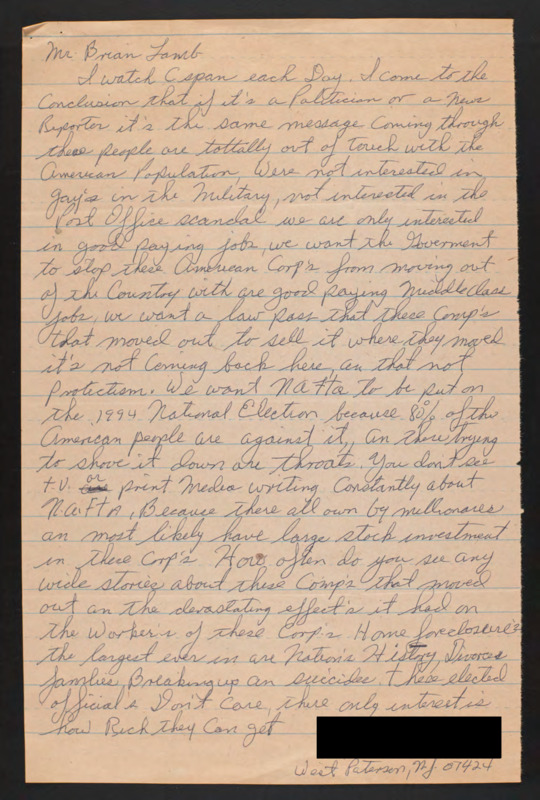 Mr Brian Lamb
I watch Cspan each Day. I come to the
Conclusion that if it's a Politician or a News
Reporter it's the same message Coming through
these people are tottally out of touch with the
American Population, Were not interested in
gay's in the Military, not interested in the
Post Office scandal we are only interested
in good paying jobs, we want the Goverment
to stop these American Corp's from moving out
of the Country with are good paying Middle Class
jobs, we want a law pass that these Comp's
that moved out to sell it where they moved
it's not Coming back here, an that not
Protectism. We want NAFta to be put on
the 1994 National Election because 80% of the
American people are against it, an there trying
to shove it down are throats. You don't see
t.V. or print Media writing Constantly about
N.A.FtA, Because there all own by millionares
an most likely have large stock investment
in these Corp's. How often do you see any
wide stories about these Comp's that moved
out an the devastating effect's it had on
the Workers of these Corp's Home foreclosure's
the largest ever in are Nation's History Divorces
families Breaking up an suicides. these elected
officials Don't Care, there only interest is
how Rich they Can get
West Paterson, NJ 07424